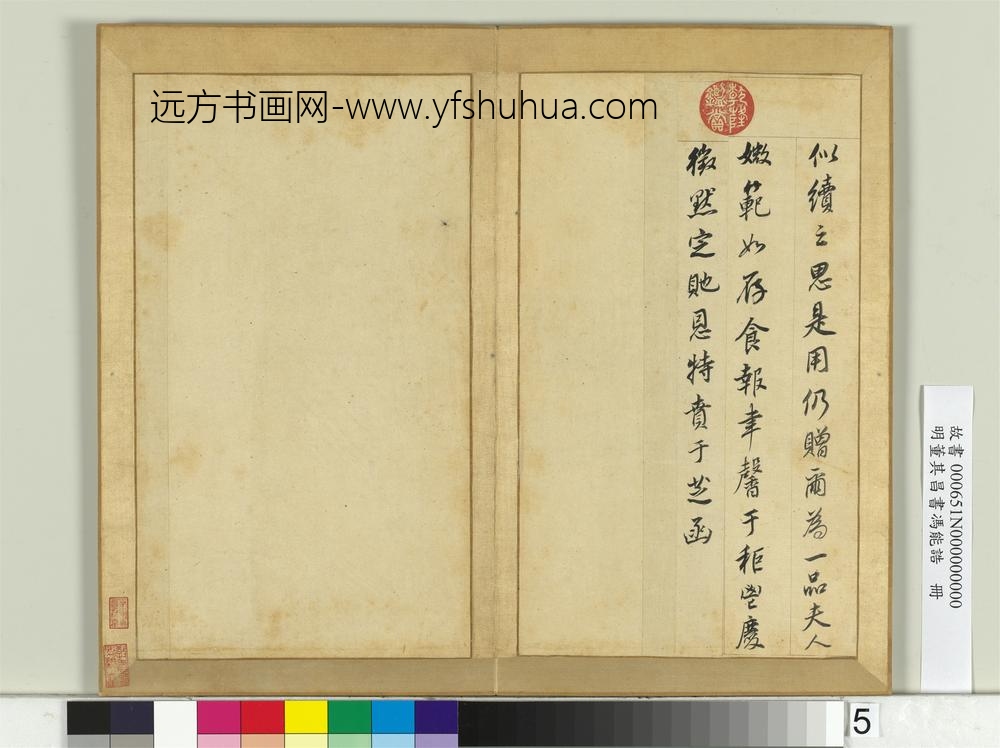 远方书画网-www.yfshuhua.com
似續之思是用仍贈爾為一品夫人
媺範如存食報聿馨于秬鬯慶
徵默定貤恩特賁于芝函
乾隆鑑賞
故書 000651N000000000
明董其昌書馮能誥 冊
5